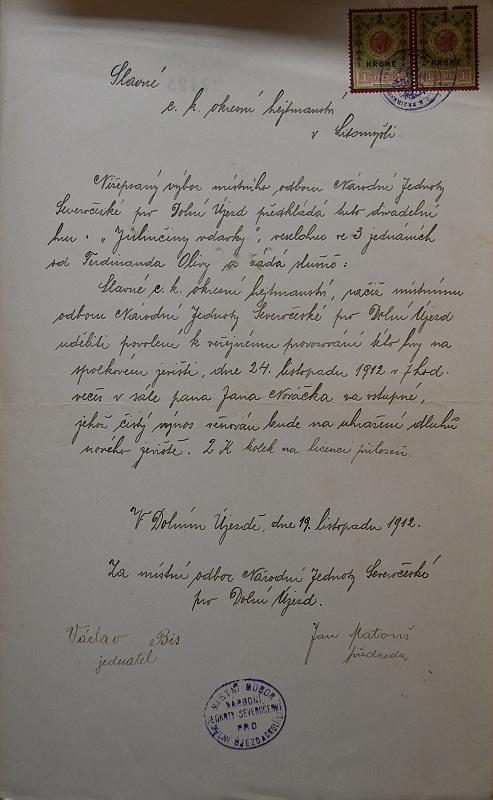 1 1
KRONE KRONE
Slavné
c. k. okresní hejtmanství
v Litomyšli.
Nížepsaný výbor místního odboru Národní Jednoty
Severočeské pro Dolní Újezd předkládá tuto divadelní
hru: „Julinčiny vdavky", veselohru ve 3 jednáních
od Ferdinanda Olivy a žádá slušně:
Slavné c. k. okresní hejtmanství, račiž místnímu
odboru Národní Jednoty Severočeské pro Dolní Újezd
uděliti povolení k veřejnému provozování této hry na
spolkovém jevišti, dne 24. listopadu 1912 v 7 hod.
večer v sále pana Jana Nováčka za vstupné,
jehož čistý výnos věnován bude na uhražení dluhů
nového jeviště. 2 K kolek na licenci přiložen.
V Dolním Újezdě, dne 19. listopadu 1912.
Za místní odbor Národní Jednoty Severočeské
pro Dolní Újezd.
Václav Bis
jednatel
Jan Matouš
předseda
MÍSTNÍ ODBOR
NÁRODNÍ
JEDNOTY SEVEROČESKÉ
PRO